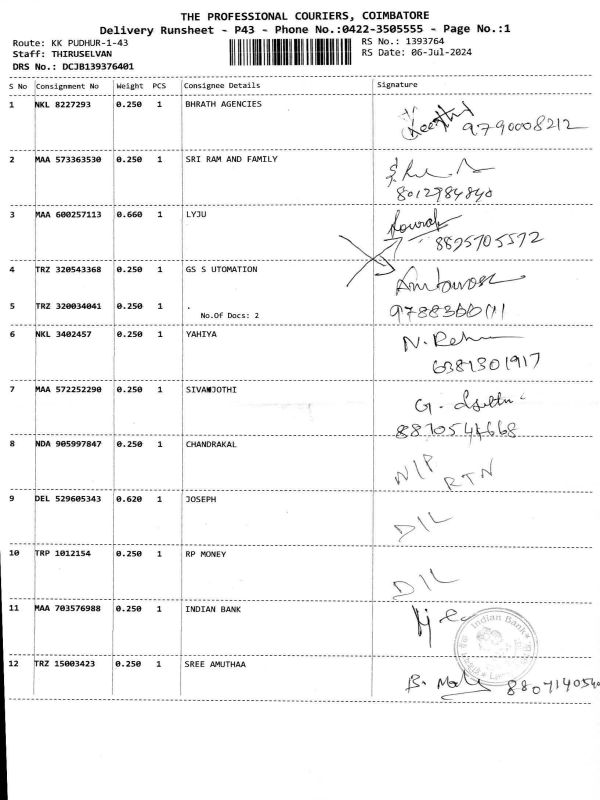 THE PROFESSIONAL COURIERS, COIMBATORE
Delivery Runsheet - P43 - Phone No.:0422-3505555 - Page No.:1
Route: KK PUDHUR-1-43 RS No.: 1393764
Staff: THIRUSELVAN RS Date: 06-Jul-2024
DRS No.: DCJB139376401
S No Consignment No Weight PCS Consignee Details Signature
1 NKL 8227293 0.250 1 BHRATH AGENCIES
9790008212
2 MAA 573363530 0.250 1 SRI RAM AND FAMILY
8012984840
3 MAA 600257113 0.660 1 LYJU
8825705572
4 TRZ 320543368 0.250 1 GS S UTOMATION
5 TRZ 320034041 0.250 1 .
No.Of Docs: 2
6 NKL 3402457 0.250 1 YAHIYA
6381301917
7 MAA 572252290 0.250 1 SIVAMJOTHI
8 NDA 905997847 0.250 1 CHANDRAKAL N/P RTN
9 DEL 529605343 0.620 1 JOSEPH D/L
10 TRP 1012154 0.250 1 RP MONEY D/L
11 MAA 703576988 0.250 1 INDIAN BANK
Indian Bank
12 TRZ 15003423 0.250 1 SREE AMUTHAA
8807140540